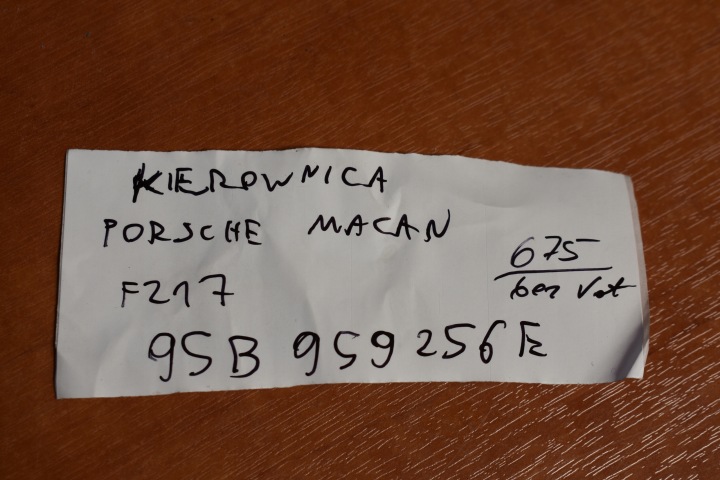 KIEROWNICA
PORSCHE MACAN
675
bez Vat
F217
95B 959 256 E